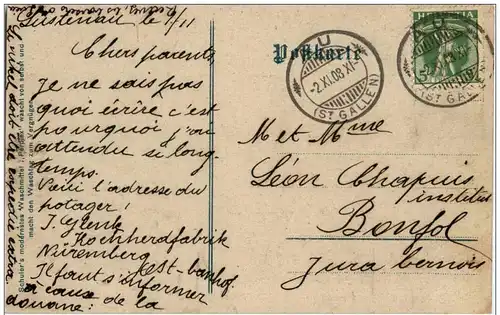 Lustenau le 1/11
Chers parents,
Je ne sais pas
quoi écrire c'est
pourquoi j'ai
attendu si long-
temps.
Voici l'adresse du
potager!
J. Glenk
Kochherdfabrik
Nüremberg
Ost-banhof
Il faut s'informer
à caus de la
douane:
Schuler's modernstes Waschmittel wascht von selber und
macht den Waschtag zum Vergnügen
Postkarte
AU
-2.XI.08.XI-
(ST. GALLEN)
HELVETIA
AU
(ST. GALLEN)
M et Mme
Léon Chapuis
institut
Bonfol
Jura bernois